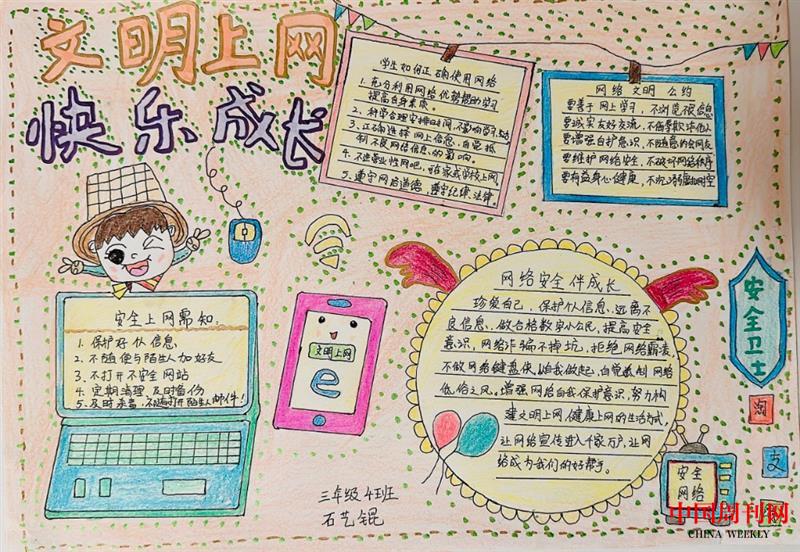 文明上网
快乐成长
学生如何正确使用网络
1. 充分利用网络优势帮助学习
提高自身素质
2. 科学合理安排时间,不影响学习
3. 正确选择网上信息,自觉抵
制不良网络信息的影响。
4. 不进营业性网吧,在家或学校上网。
5. 遵守网络道德,遵守纪律、法律。
网络文明公约
要善于网上学习,不浏览不良信息
要诚实友好交流,不侮辱欺诈他人
要增强自护意识,不随意约会网友
要维护网络安全,不破坏网络秩序
要有益身心健康,不沉溺虚拟时空
安全上网需知
1. 保护好个人信息
2. 不随便与陌生人加好友
3. 不打开不安全网站
4. 定期清理,及时备份
5. 及时杀毒,不随便打开陌生人邮件!
文明上网
e
网络安全伴成长
珍爱自己,保护个人信息、远离不
良信息、做合格数字小公民,提高安全
意识,网络诈骗不掉坑,拒绝网络霸凌
不做网络键盘侠,从我做起,自觉抵制网络
低俗之风。增强网络自我保护意识,努力构
建文明上网,健康上网的生活方式,
让网络宣传进入千家万户,让网
络成为我们的好帮手。
安全卫士
淘
支
安全
网络
三年级4班
石艺锟
中国周刊网
CHINA WEEKLY